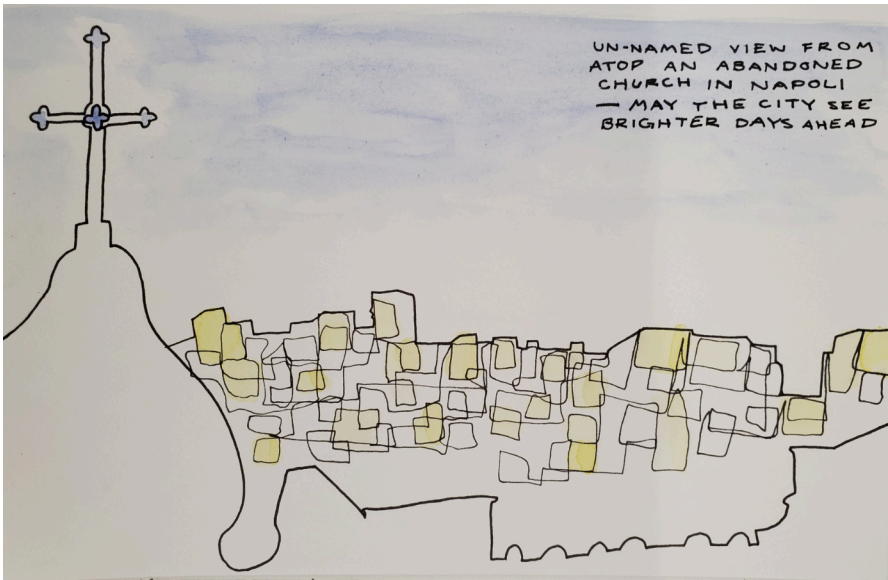 UN-NAMED VIEW FROM
ATOP AN ABANDONED
CHURCH IN NAPOLI
— MAY THE CITY SEE
BRIGHTER DAYS AHEAD